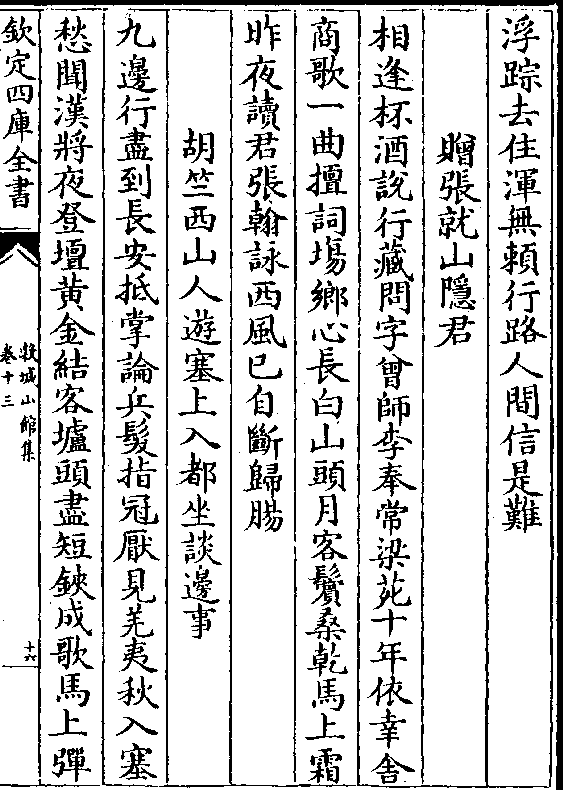 浮踪去住渾無賴行路人間信是難
贈張就山隱君
相逢杯酒說行藏問字曾師李奉常梁苑十年依幸舍
商歌一曲擅詞塲鄉心長白山頭月客鬢桑乾馬上霜
昨夜讀君張翰詠西風已自斷歸腸
胡竺西山人遊塞上入都坐談邊事
九邊行盡到長安抵掌論兵髮指冠厭見羌夷秋入塞
愁聞漢將夜登壇黄金結客壚頭盡短鋏成歌馬上彈
欽定四庫全書
穀城山館集
卷十三
十六